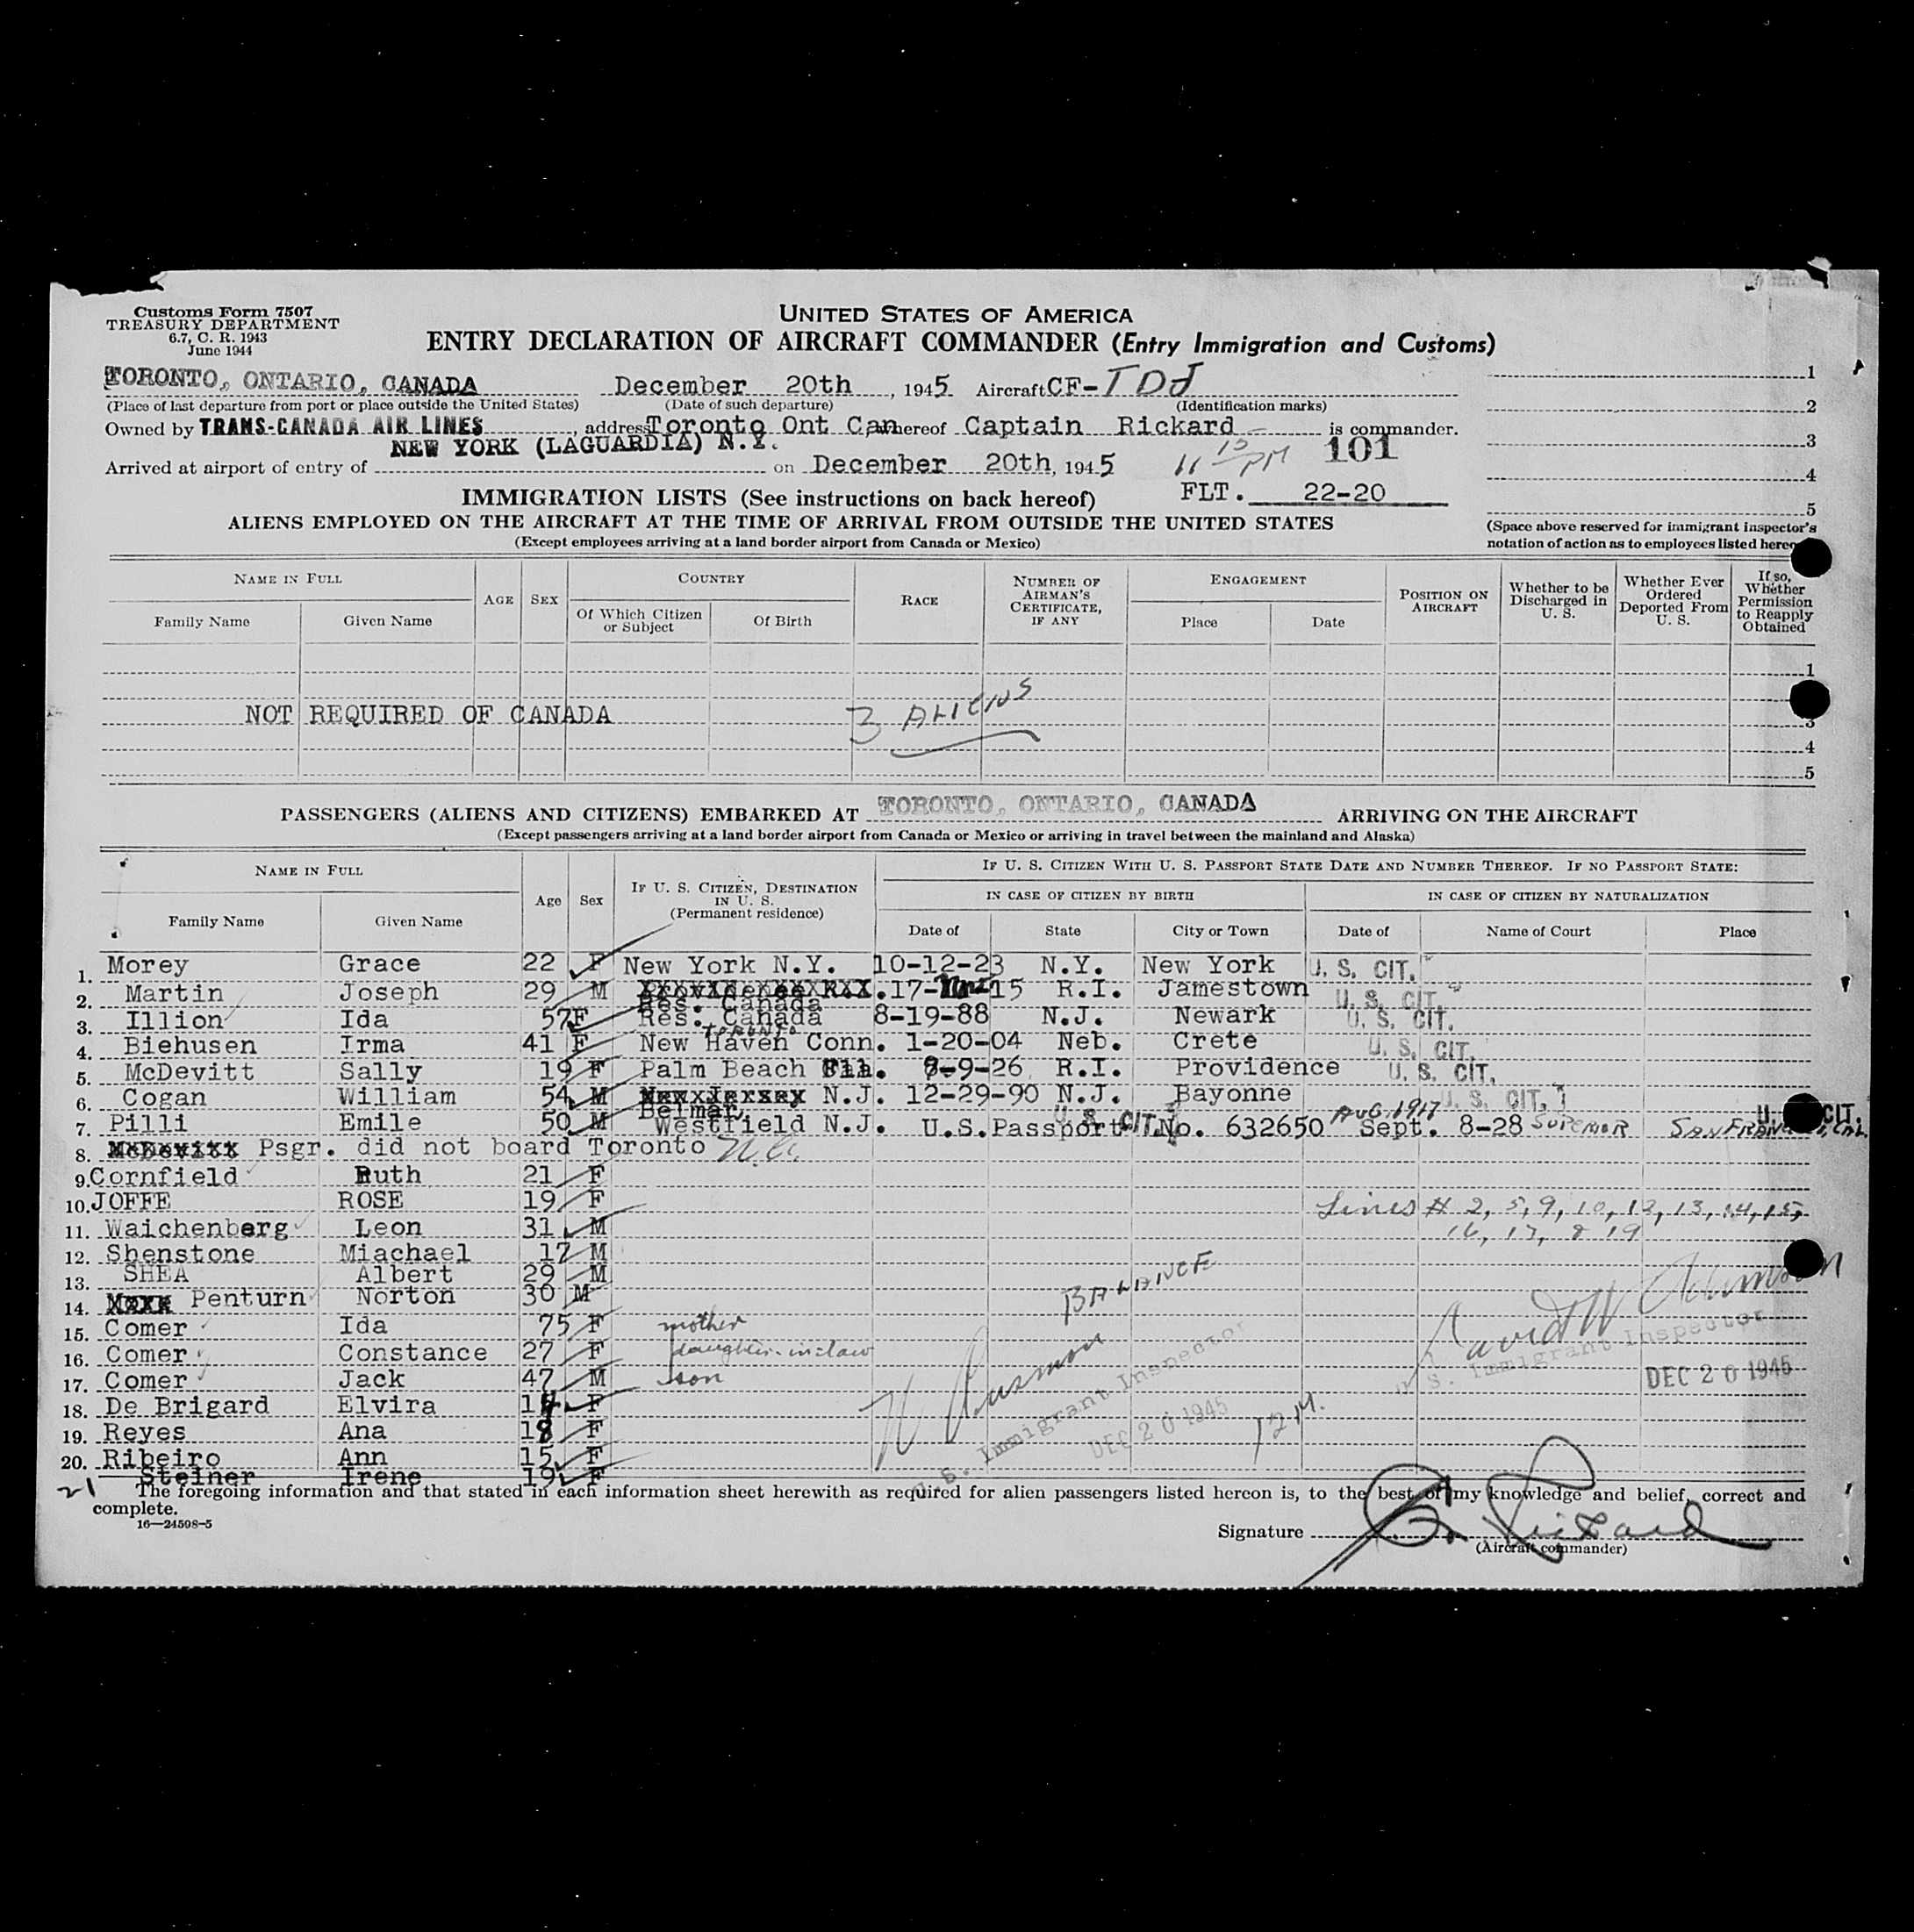 Customs Form 7507
TREASURY DEPARTMENT
6.7, C. R. 1943
June 1944
UNITED STATES OF AMERICA
ENTRY DECLARATION OF AIRCRAFT COMMANDER (Entry Immigration and Customs)
TORONTO, ONTARIO, CANADA December 20th, 1945 Aircraft CF-TDJ
(Place of last departure from port or place outside the United States) (Date of such departure) (Identification marks)
Owned by TRANS-CANADA AIR LINES, address Toronto Ont Can hereof Captain Rickard is commander.
NEW YORK (LAGUARDIA) N.Y.
Arrived at airport of entry of on December 20th, 1945 11 15 PM 101
FLT. 22-20
1
2
3
4
5
(Space above reserved for immigrant inspector's notation of action as to employees listed hereon
IMMIGRATION LISTS (See instructions on back hereof)
ALIENS EMPLOYED ON THE AIRCRAFT AT THE TIME OF ARRIVAL FROM OUTSIDE THE UNITED STATES
(Except employees arriving at a land border airport from Canada or Mexico)
NAME IN FULL AGE SEX COUNTRY RACE NUMBER OF AIRMAN'S CERTIFICATE, IF ANY ENGAGEMENT POSITION ON AIRCRAFT Whether to be Discharged in U. S. Whether Ever Ordered Deported From U. S. If so, Whether Permission to Reapply Obtained
Family Name Given Name Of Which Citizen or Subject Of Birth Place Date
1
NOT REQUIRED OF CANADA 3 ALIENS 3
4
5
PASSENGERS (ALIENS AND CITIZENS) EMBARKED AT TORONTO, ONTARIO, CANADA ARRIVING ON THE AIRCRAFT
(Except passengers arriving at a land border airport from Canada or Mexico or arriving in travel between the mainland and Alaska)
NAME IN FULL Age Sex IF U. S. CITIZEN, DESTINATION IN U. S. (Permanent residence) IF U. S. CITIZEN WITH U. S. PASSPORT STATE DATE AND NUMBER THEREOF. IF NO PASSPORT STATE:
IN CASE OF CITIZEN BY BIRTH IN CASE OF CITIZEN BY NATURALIZATION
Family Name Given Name Date of State City or Town Date of Name of Court Place
1. Morey Grace 22 F New York N.Y. 10-12-23 N.Y. New York U. S. CIT.
2. Martin Joseph 29 M Providence R.I. 17- 15 R.I. Jamestown U. S. CIT.
Res. Canada
3. Illion Ida 57 F Res. Canada 8-19-88 N.J. Newark U. S. CIT.
TORONTO
4. Biehusen Irma 41 F New Haven Conn. 1-20-04 Neb. Crete U. S. CIT.
5. McDevitt Sally 19 F Palm Beach Fla. 8-9-26 R.I. Providence U. S. CIT.
6. Cogan William 54 M New Jersey N.J. 12-29-90 N.J. Bayonne U. S. CIT.
Belmar
7. Pilli Emile 50 M Westfield N.J. U.S. CIT. U.S. Passport No. 632650 AUG 1917 Sept. 8-28 SUPERIOR SAN FRAN CAL U. CIT.
8. McDevitt Psgr. did not board Toronto
9. Cornfield Ruth 21 F
10. JOFFE ROSE 19 F Lines # 2, 5, 9, 10, 12, 13, 14, 15,
11. Waichenberg Leon 31 M 16, 17, & 19
12. Shenstone Miachael 17 M
13. SHEA Albert 29 M
14. Penturn Norton 30 M BALANCE
15. Comer Ida 75 F mother
16. Comer Constance 27 F daughter-in-law
17. Comer Jack 47 M son
U. S. Immigrant Inspector DEC 20 1945
18. De Brigard Elvira 14 F
19. Reyes Ana 18 F
U. S. Immigrant Inspector DEC 20 1945 12 M.
20. Ribeiro Ann 15 F
21 Steiner Irene 19 F
The foregoing information and that stated in each information sheet herewith as required for alien passengers listed hereon is, to the best of my knowledge and belief, correct and
complete.
16—24598-5
Signature Rickard
(Aircraft commander)